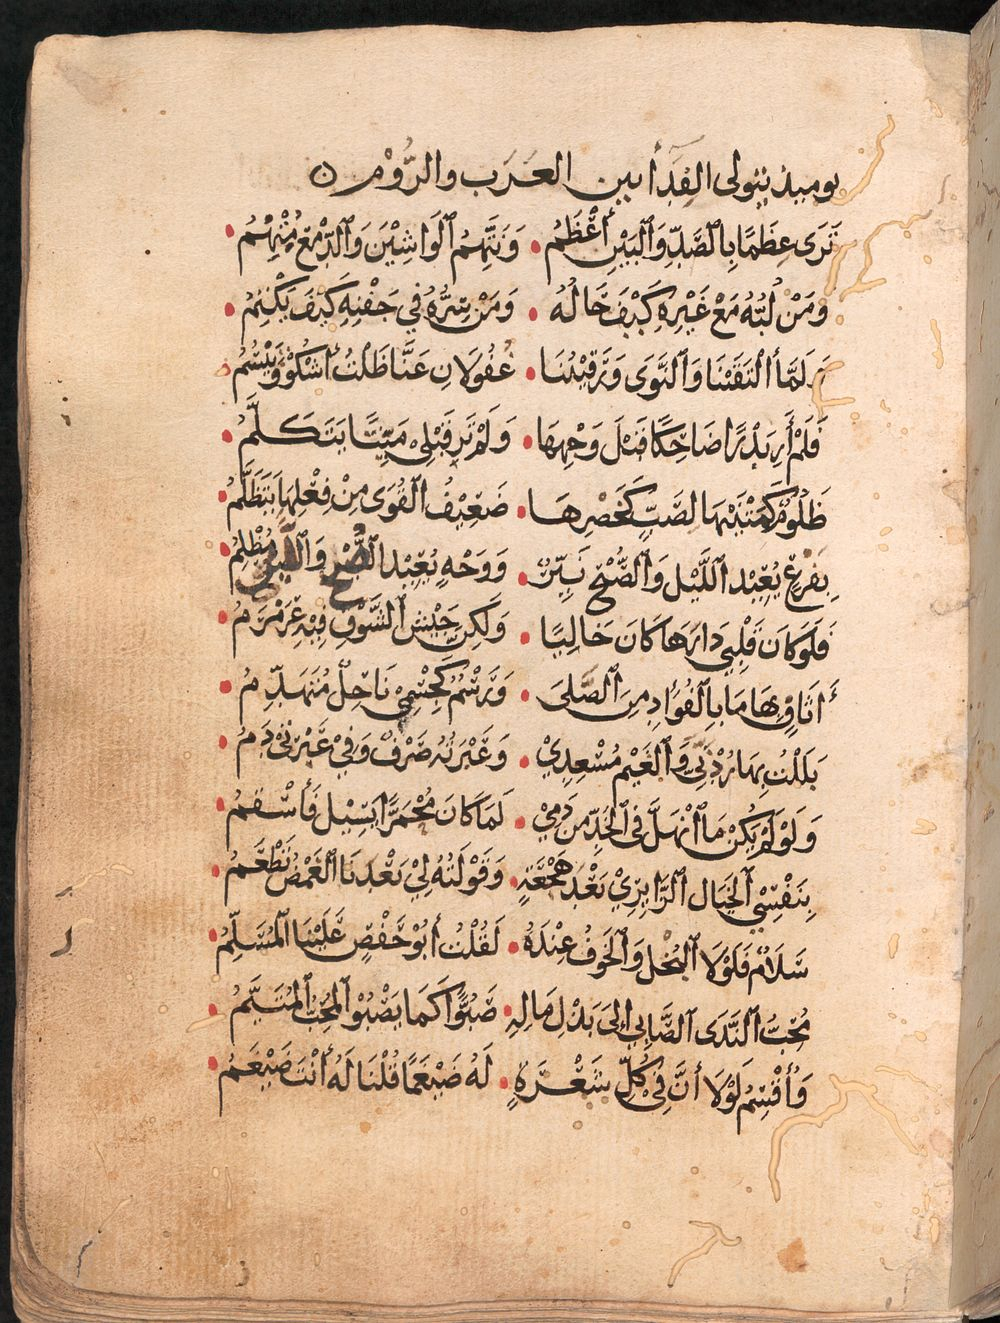 يوميذ يتولى الفدأ بين العَرَب والرُّوْم ن
نَرَى عِظَمًا بِالصَّدِّ وَالْبَيْنِ أَعْظَمُ • وَنَتَّهِمُ الْوَاشِيْنَ وَالدَّمْعُ مِنْهُمُ •
وَمَنْ لُبُّهُ مَعْ غَيْرِهِ كَيْفَ حَالُهُ • وَمَنْ سِرُّهُ فِي جَفْنِهِ كَيْفَ يَكْتِمُ •
وَلَمَّا الْتَقَيْنَا وَالنَّوَى وَرَقِيْبُنَا • غَفُولَانِ عَنَّا ظَلْتُ أَشْكُوْ وَتَبْسُمُ •
فَلَمْ أَرَ بَدْرًا ضَاحِكًا قَبْلَ وَجْهِهَا • وَلَمْ تَرَ قَبْلِيْ مَيِّتًا يَتَكَلَّمُ •
ظَلُوْمٌ كَمَتْنَيْهَا لِصَبٍّ كَخَصْرِهَا • ضَعِيْفُ الْقُوَى مِنْ فِعْلِهَا يَتَظَلَّمُ •
بِفَرْعٍ يُعِيْدُ اللَّيْلَ وَالصُّبْحُ نَيِّرٌ • وَوَجْهٍ يُعِيْدُ الصُّبْحَ وَاللَّيْلُ مُظْلِمُ •
فَلَوْ كَانَ قَلْبِي دَارَهَا كَانَ خَالِيًا • وَلَكِنَّ جَيْشَ الشَّوْقِ فِيْهِ عَرَمْرَمُ •
أَثَافٍ بِهَا مَا بِالْفُؤَادِ مِنَ الصَّلَى • وَرَسْمٌ كَجِسْمِيْ نَاحِلٌ مُتَهَدِّمُ •
بَلَلْتُ بِهَا رُدْنَيَّ وَالْغَيْمُ مُسْعِدِيْ • وَعَبْرَتُهُ صِرْفٌ وَفِيْ عَبْرَتِيْ دَمُ •
وَلَوْ لَمْ يَكُنْ مَا انْهَلَّ فِي الْخَدِّ مِنْ دَمِيْ • لَمَا كَانَ مُحْمَرًّا يَسِيْلُ فَأَسْقَمُ •
بِنَفْسِيْ الْخَيَالُ الزَّايِرِيْ بَعْدَ هَجْعَةٍ • وَقَوْلَتُهُ لِيْ بَعْدَنَا الْغَمْضُ تَطْعَمُ •
سَلَامٌ فَلَوْلَا الْبُخْلُ وَالْخَوْفُ عِنْدَهُ • لَقُلْتُ أَبُوْ حَفْصٍ عَلَيْنَا الْمُسَلِّمُ •
مُحِبُّ النَّدَى الصَّابِي إِلَى بَذْلِ مَالِهِ • صُبُوًّا كَمَا يَصْبُوْ الْمُحِبُّ الْمُتَيَّمُ •
وَأُقْسِمُ لَوْلَا أَنَّ فِيْ كُلِّ شَعْرَةٍ • لَهُ ضَيْغَمًا قُلْنَا لَهُ أَنْتَ ضَيْغَمُ •